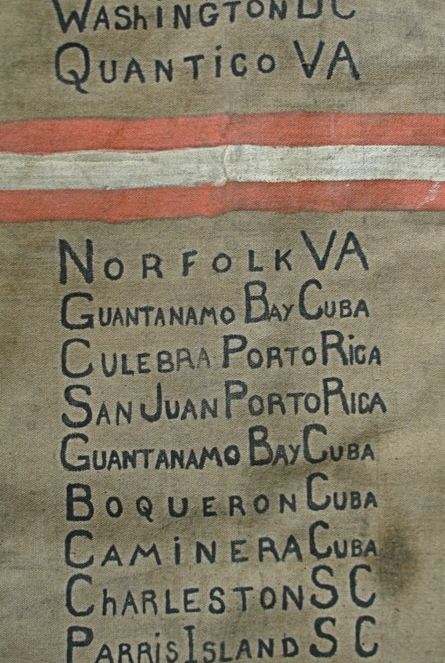 WAShINGTON DC
QUANTiCO VA
NORFOLK VA
GUANTANAMO BAY CUBA
CULEBRA PORTO RiCA
SAN JUAN PORTO RICA
GUANTANAMO BAY CUBA
BOQUERON CUBA
CAMiNERA CUBA
ChARLESTON S C
PARRiS ISLAND S C